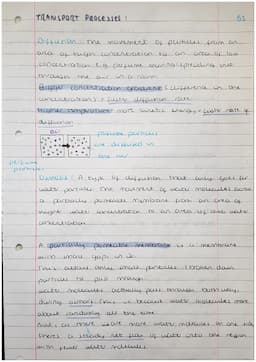 TRANSPORT PROCESSES :
Diffusion : The movement of particles from an
area of high concentration to an area of low
concentration E.g. perfume spreading out
through the air in a room
Bigger concentration gradient (difference in the
concentrations) = faster diffusion rate
Higher temperature more kinetic energy = faster rate of
diffusion
perfume particles
are diffused in
the air
perfume
particles
Osmosis : A type of diffusion that only goes for
water particles. The movement of water molecules across
a partially permeable membrane from an area of
higher water concentration to an area of low water
concentration
A partially permeable membrane is a membrane
with small gaps in it.
This allows only small particles
particles to pass through
water molecules actually pass through both ways
during osmosis. This is because water molecules move
about randomly all the time
there are more water molecules on one side
there's a steady flow of water into the region
with fewer water molecules